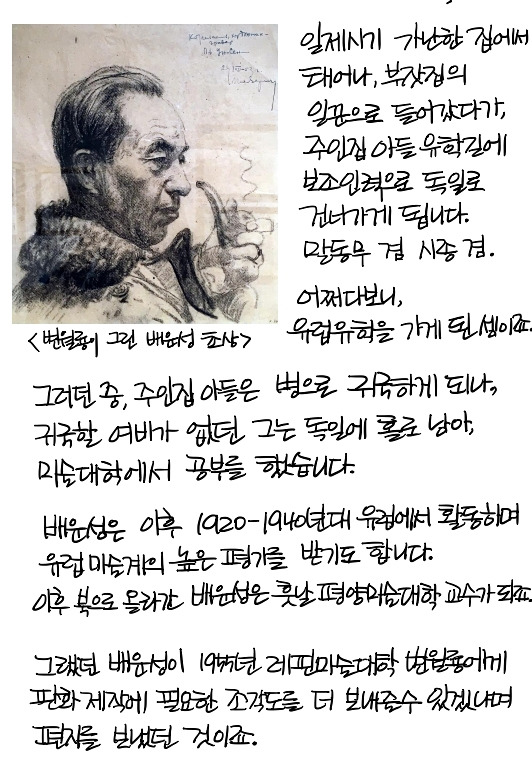 일제시기 가난한 집에서
태어나, 부잣집의
일꾼으로 들어갔다가,
주인집 아들 유학길에
보조인력으로 독일로
건너가게 됩니다.
말동무 겸 시종 겸.
어쩌다보니,
유럽유학을 가게 된 셈이죠.
<변월룡이 그린 배운성 초상>
그러던 중, 주인집 아들은 병으로 귀국하게 되나,
귀국할 여비가 없던 그는 독일에 홀로 남아,
미술대학에서 공부를 했습니다.
배운성은 이후 1920-1940년대 유럽에서 활동하며
유럽 미술계의 높은 평가를 받기도 합니다.
이후 북으로 올라간 배운성은 훗날 평양미술대학 교수가 되죠.
그랬던 배운성이 1955년 레핀미술대학 변월룡에게
판화 제작에 필요한 조각도를 더 보내줄수 있겠냐며
편지를 보냈던 것이죠.